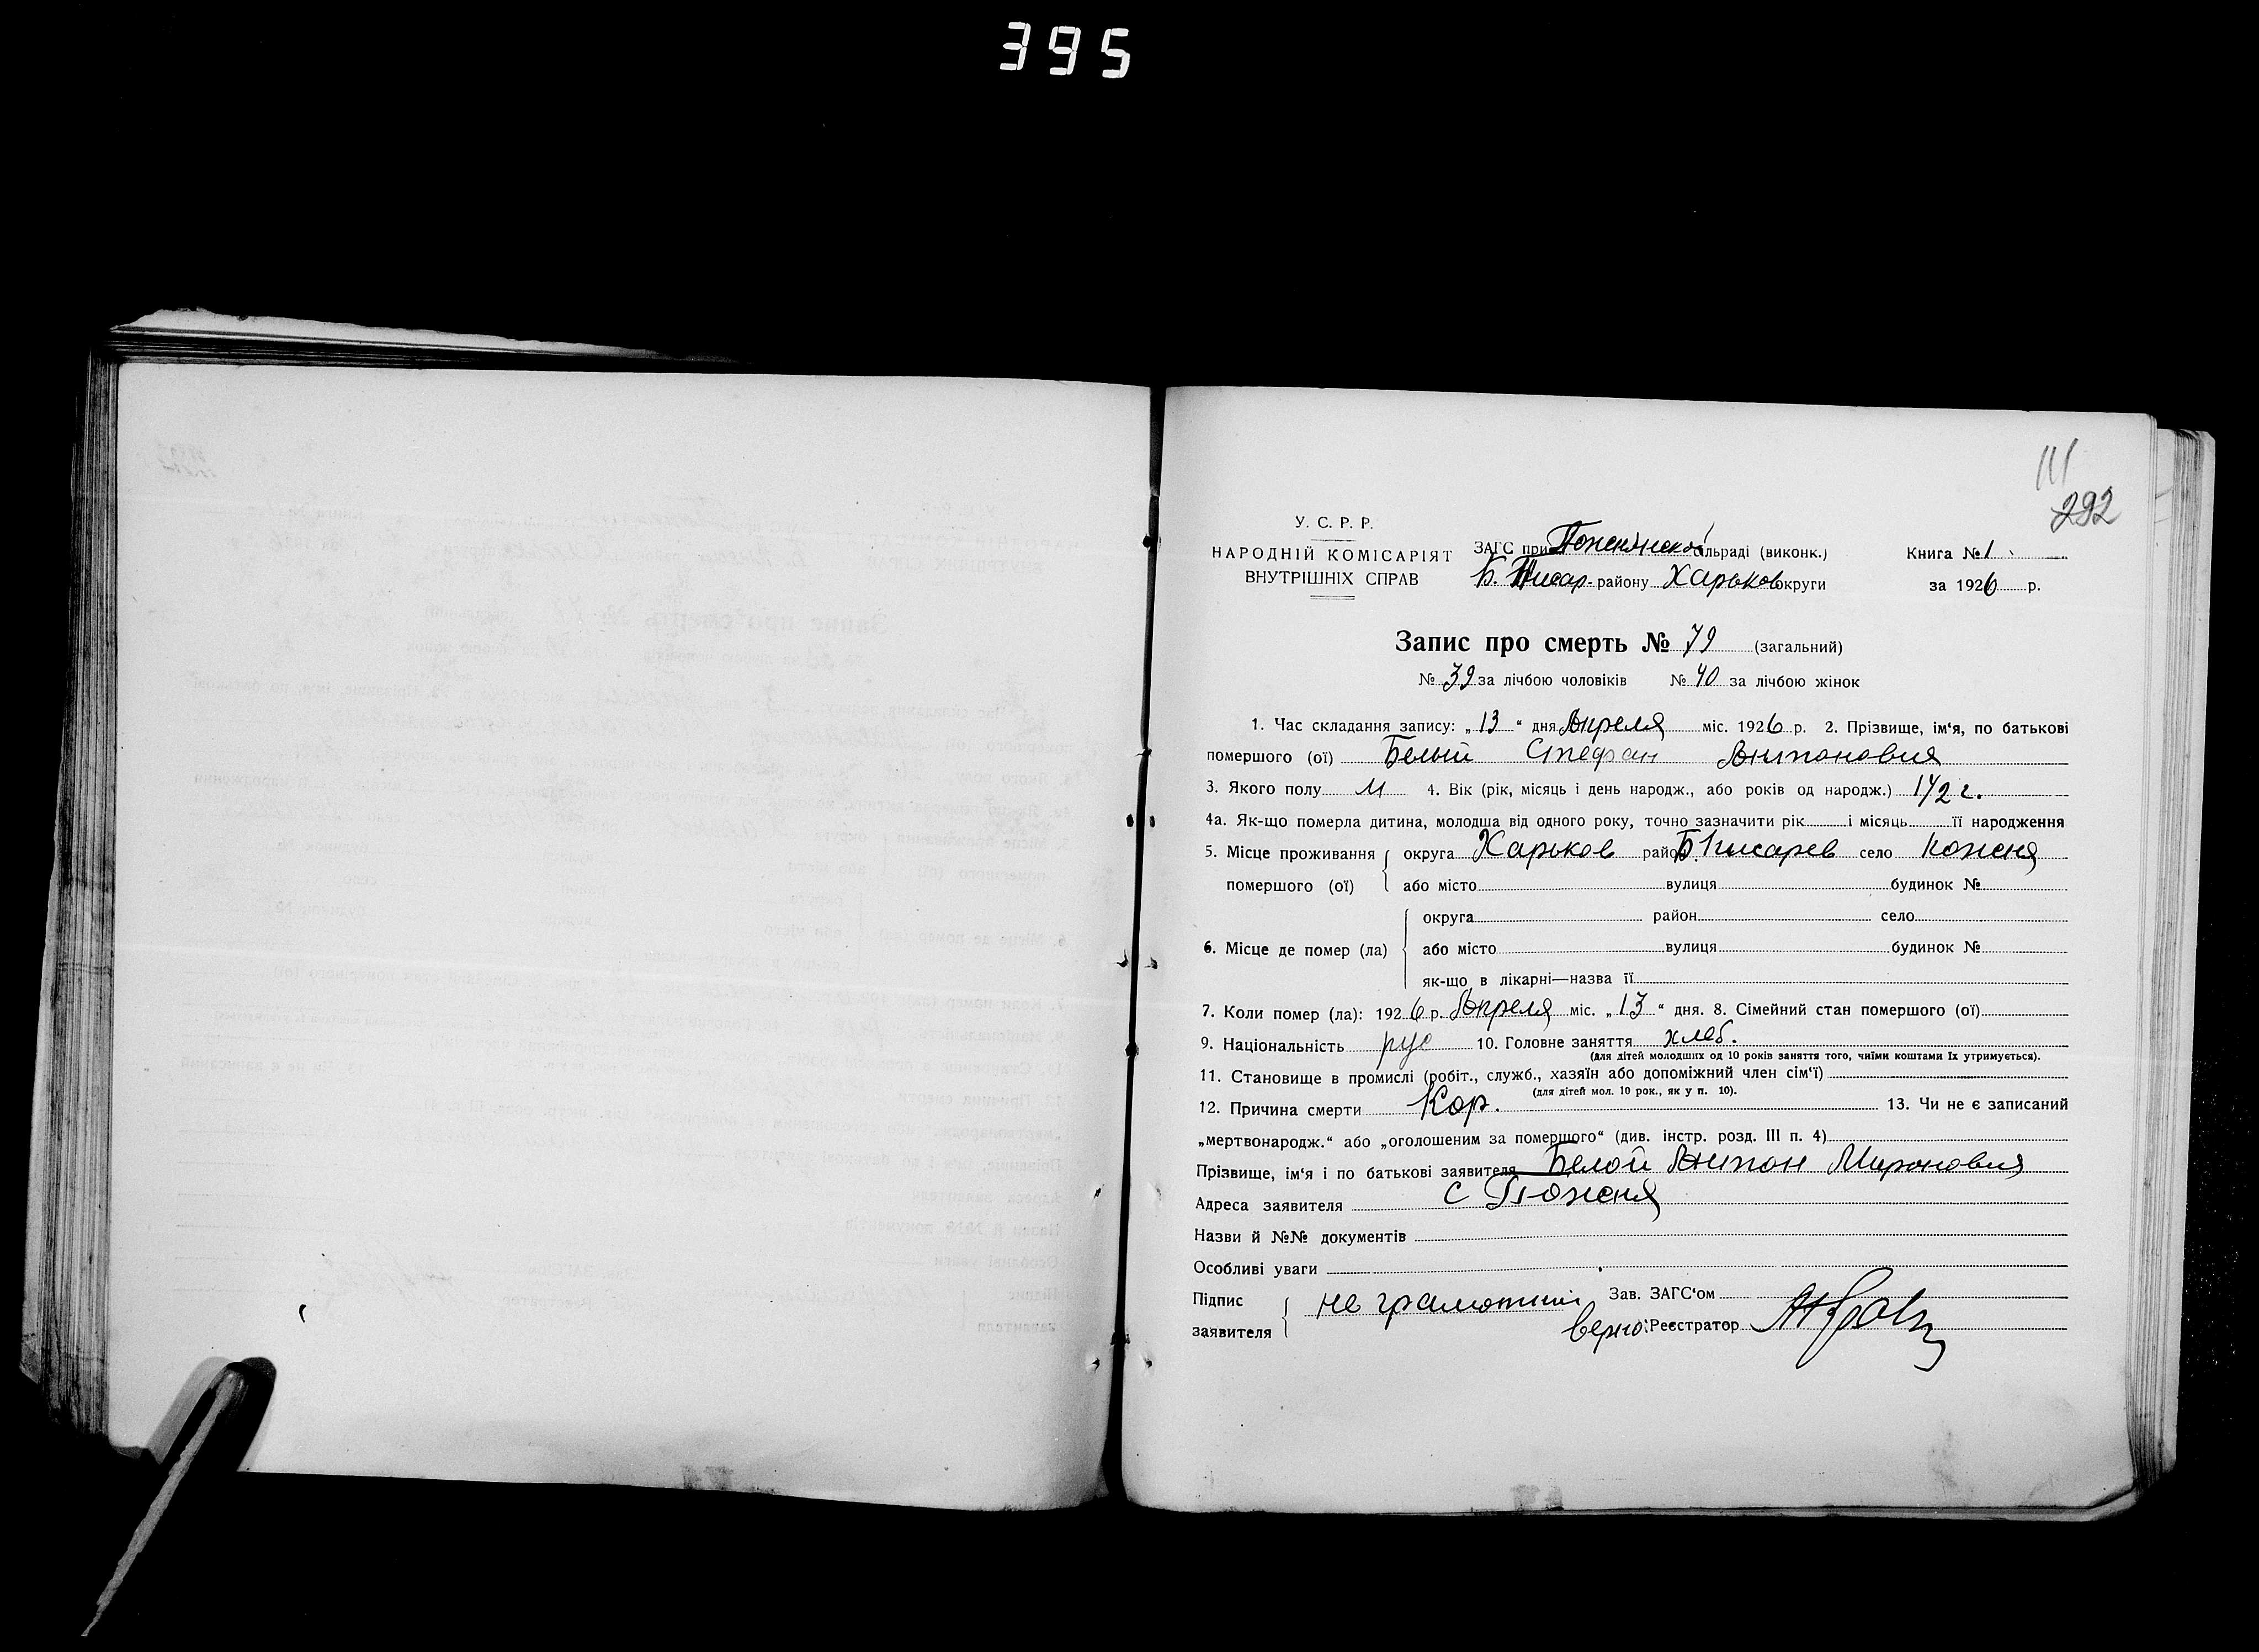 395
111
292
У. С. Р. Р.
НАРОДНІЙ КОМІСАРІЯТ
ВНУТРІШНІХ СПРАВ
ЗАГС при Поженянской сільраді (виконк.)
Б. Писар. району Харьков округи
Книга № 1
за 1926 р.
Запис про смерть № 79 (загальний)
№ 39 за лічбою чоловіків № 40 за лічбою жінок
1. Час складання запису: „13“ дня Апреля міс. 1926 р. 2. Прізвище, ім‘я, по батькові
помершого (ої) Белый Стефан Антоновия
3. Якого полу М 4. Вік (рік, місяць і день народж., або років од народж.) 1/2 г.
4а. Як-що померла дитина, молодша від одного року, точно зазначити рік і місяць її народження
5. Місце проживання помершого (ої) округа Харьков район Б. Писарев село Поженя
або місто вулиця будинок №
6. Місце де помер (ла) округа район село
або місто вулиця будинок №
як-що в лікарні—назва її
7. Коли помер (ла): 1926 р. Апреля міс. „13“ дня. 8. Сімейний стан помершого (ої)
9. Національність рус 10. Головне заняття хлеб.
(для дітей молодших од 10 років заняття того, чиїми коштами їх утримується).
11. Становище в промислі (робіт., служб., хазяїн або допоміжний член сім‘ї)
(для дітей мол. 10 рок., як у п. 10).
12. Причина смерти Кор. 13. Чи не є записаний
„мертвонародж.“ або „оголошеним за помершого“ (див. інстр. розд. III п. 4)
Прізвище, ім‘я і по батькові заявителя Белой Антон Мироновия
Адреса заявителя с Поженя
Назви й №№ документів
Особливі уваги
Підпис заявителя не грамотний
Зав. ЗАГС‘ом
верно: Реєстратор